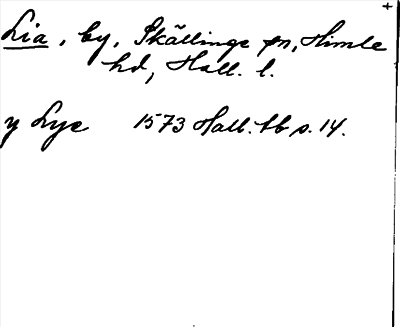 Lia, by, Skällinge sn, Himle
hd, Hall. l.
y Lye 1573 Hall. tb s. 14.